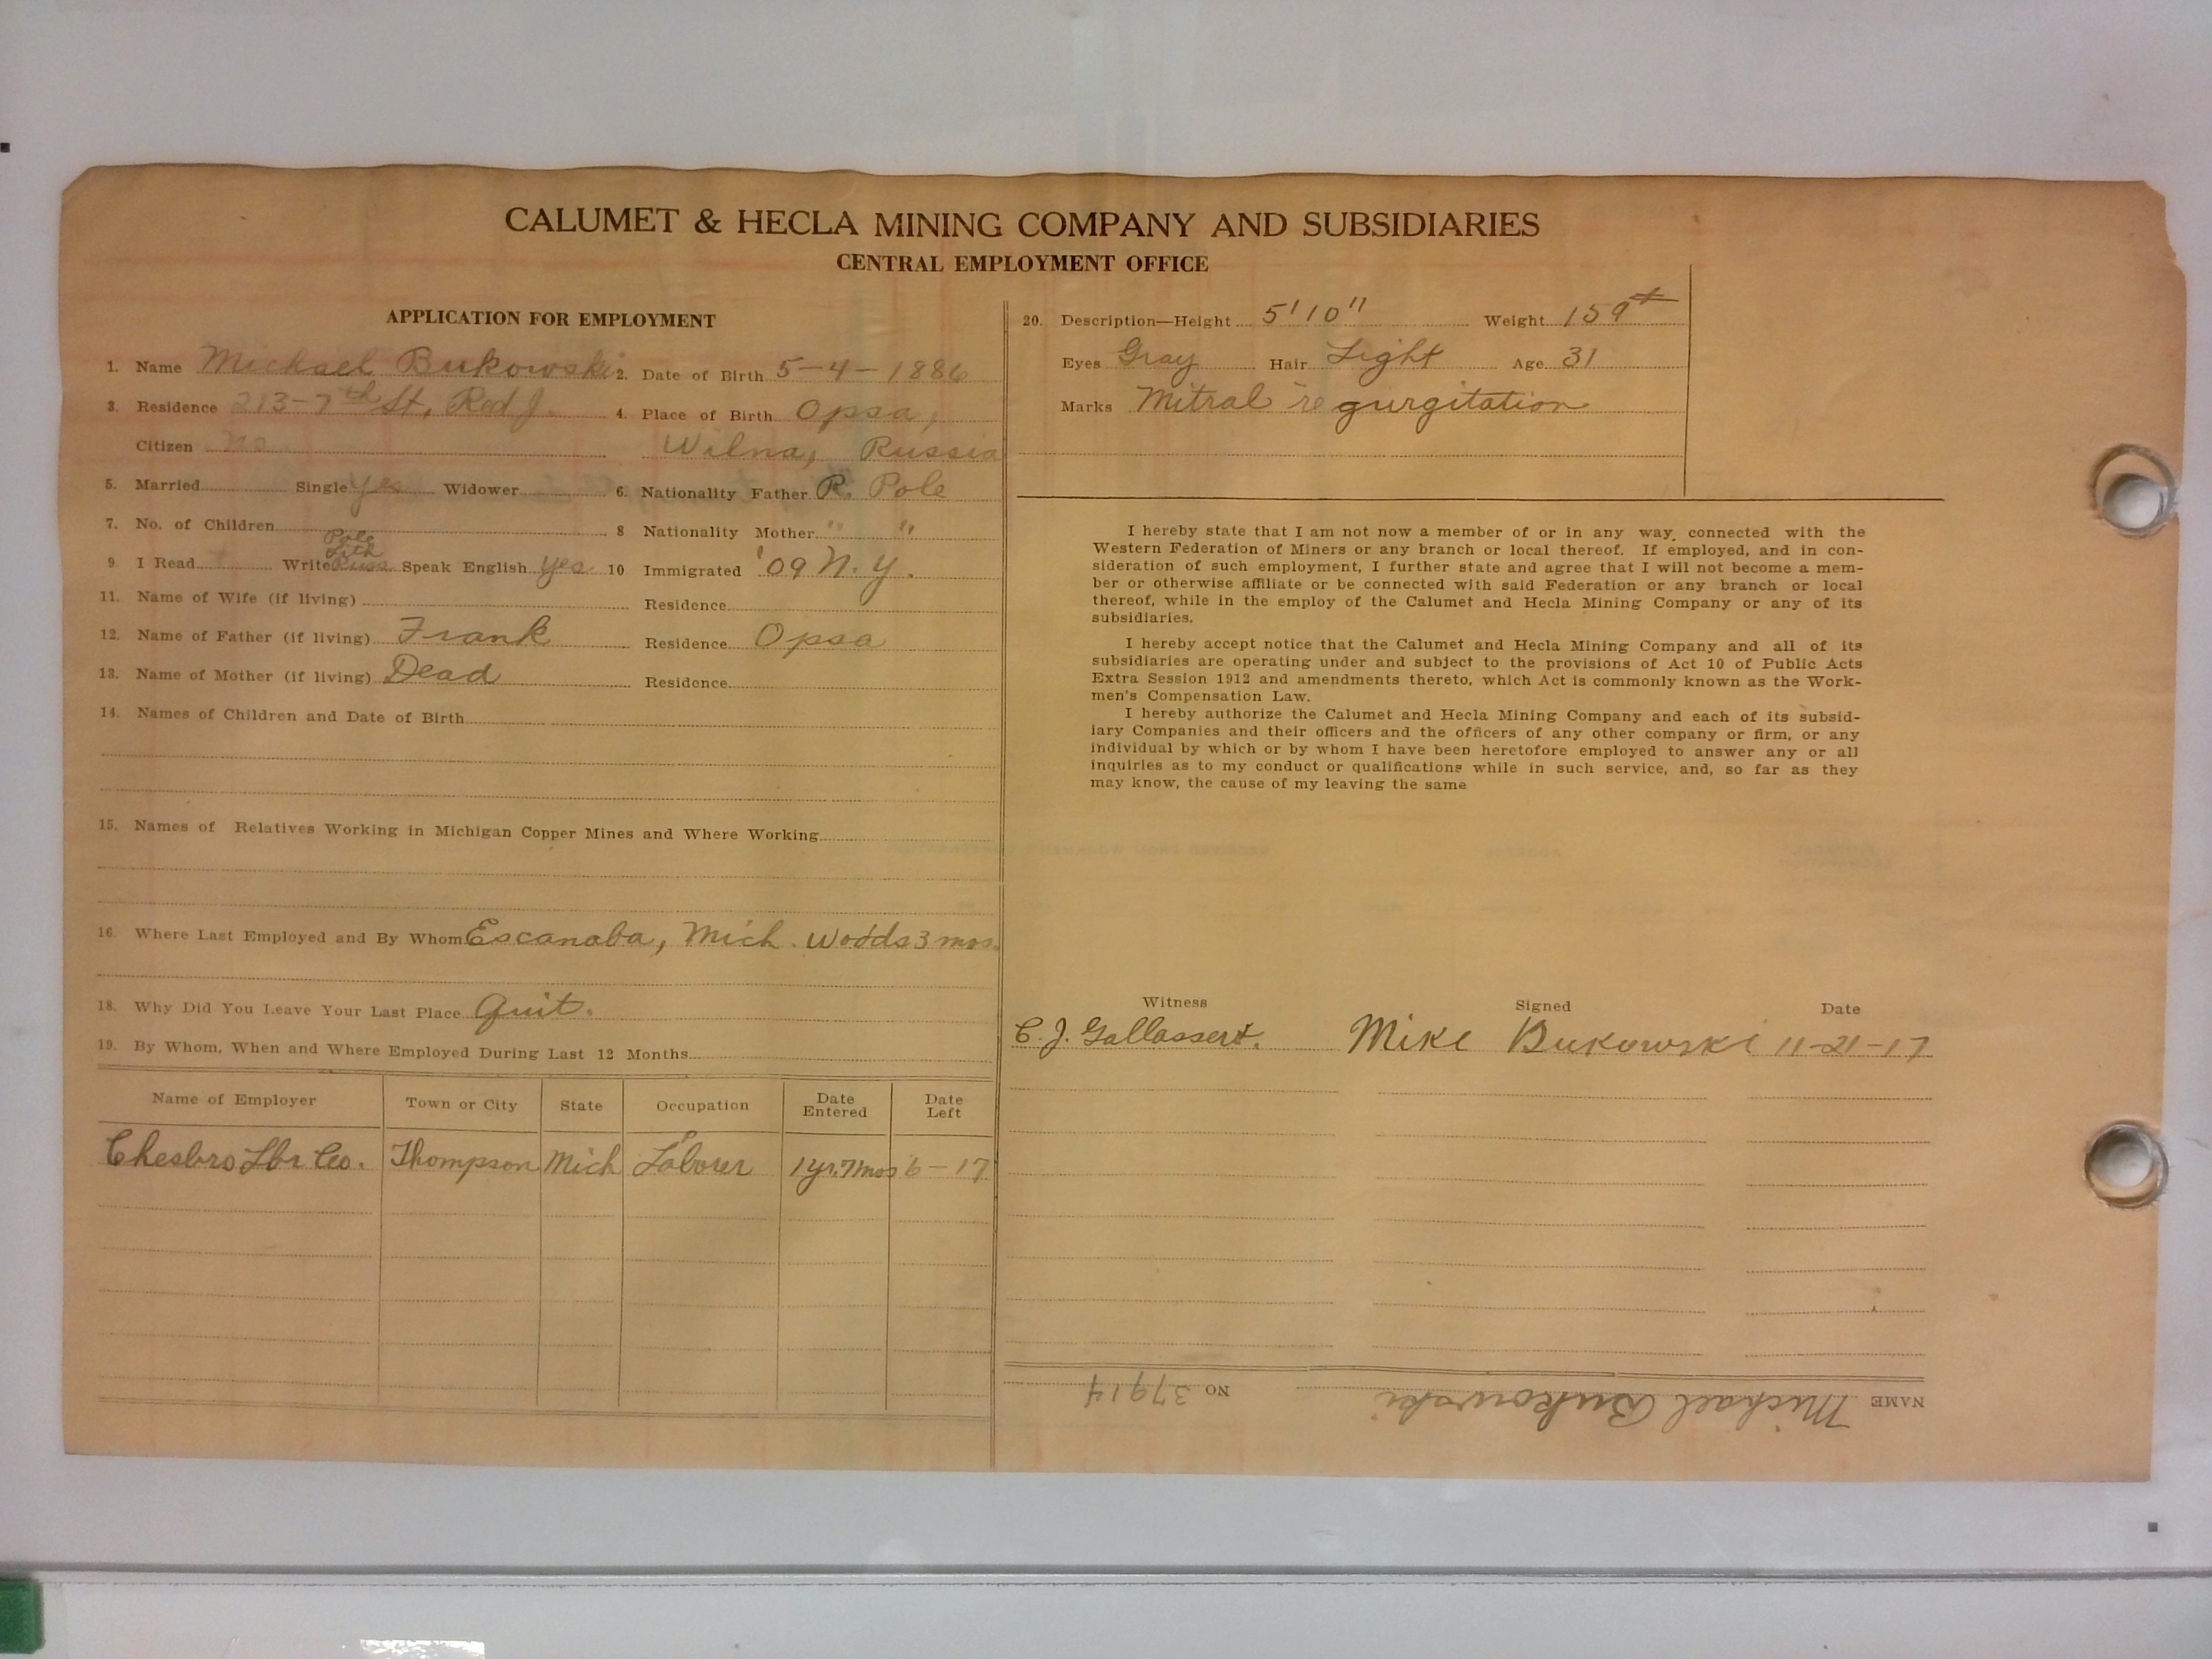 CALUMET & HECLA MINING COMPANY AND SUBSIDIARIES
CENTRAL EMPLOYMENT OFFICE
APPLICATION FOR EMPLOYMENT
1. Name Michael Bukowski 2. Date of Birth 5-4-1886
3. Residence 213-7th St, Red J. 4. Place of Birth Opsa,
Citizen no Wilna, Russia
5. Married Single yes Widower 6. Nationality Father R. Pole
7. No. of Children 8 Nationality Mother " "
Pole
Lith
9 I Read Write Russ Speak English yes 10 Immigrated '09 N.Y.
11. Name of Wife (if living) Residence
12. Name of Father (if living) Frank Residence Opsa
13. Name of Mother (if living) Dead Residence
14. Names of Children and Date of Birth
15. Names of Relatives Working in Michigan Copper Mines and Where Working
16 Where Last Employed and By Whom Escanaba, Mich. Woods 3 mos.
18. Why Did You Leave Your Last Place Quit.
19. By Whom, When and Where Employed During Last 12 Months
Name of Employer Town or City State Occupation Date Entered Date Left
Chesbro Lbr Co. Thompson Mich Laborer 1 yr. 7 mos 6-17
20. Description—Height 5'10" Weight 159
Eyes Gray Hair Light Age 31
Marks Mitral regurgitation
I hereby state that I am not now a member of or in any way connected with the
Western Federation of Miners or any branch or local thereof. If employed, and in con-
sideration of such employment, I further state and agree that I will not become a mem-
ber or otherwise affiliate or be connected with said Federation or any branch or local
thereof, while in the employ of the Calumet and Hecla Mining Company or any of its
subsidiaries.
I hereby accept notice that the Calumet and Hecla Mining Company and all of its
subsidiaries are operating under and subject to the provisions of Act 10 of Public Acts
Extra Session 1912 and amendments thereto, which Act is commonly known as the Work-
men's Compensation Law.
I hereby authorize the Calumet and Hecla Mining Company and each of its subsid-
iary Companies and their officers and the officers of any other company or firm, or any
individual by which or by whom I have been heretofore employed to answer any or all
inquiries as to my conduct or qualifications while in such service, and, so far as they
may know, the cause of my leaving the same
Witness Signed Date
C. J. Mike Bukowski 11-21-17
NAME Michael Bukowski NO 37914